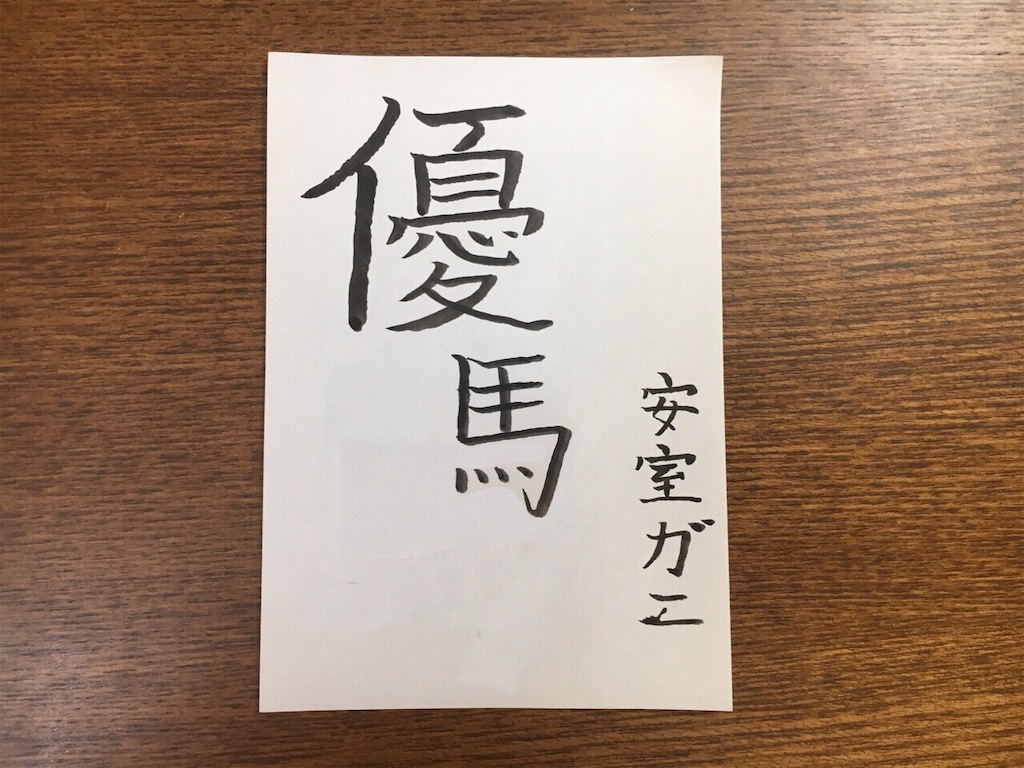 安室ガエ
優馬